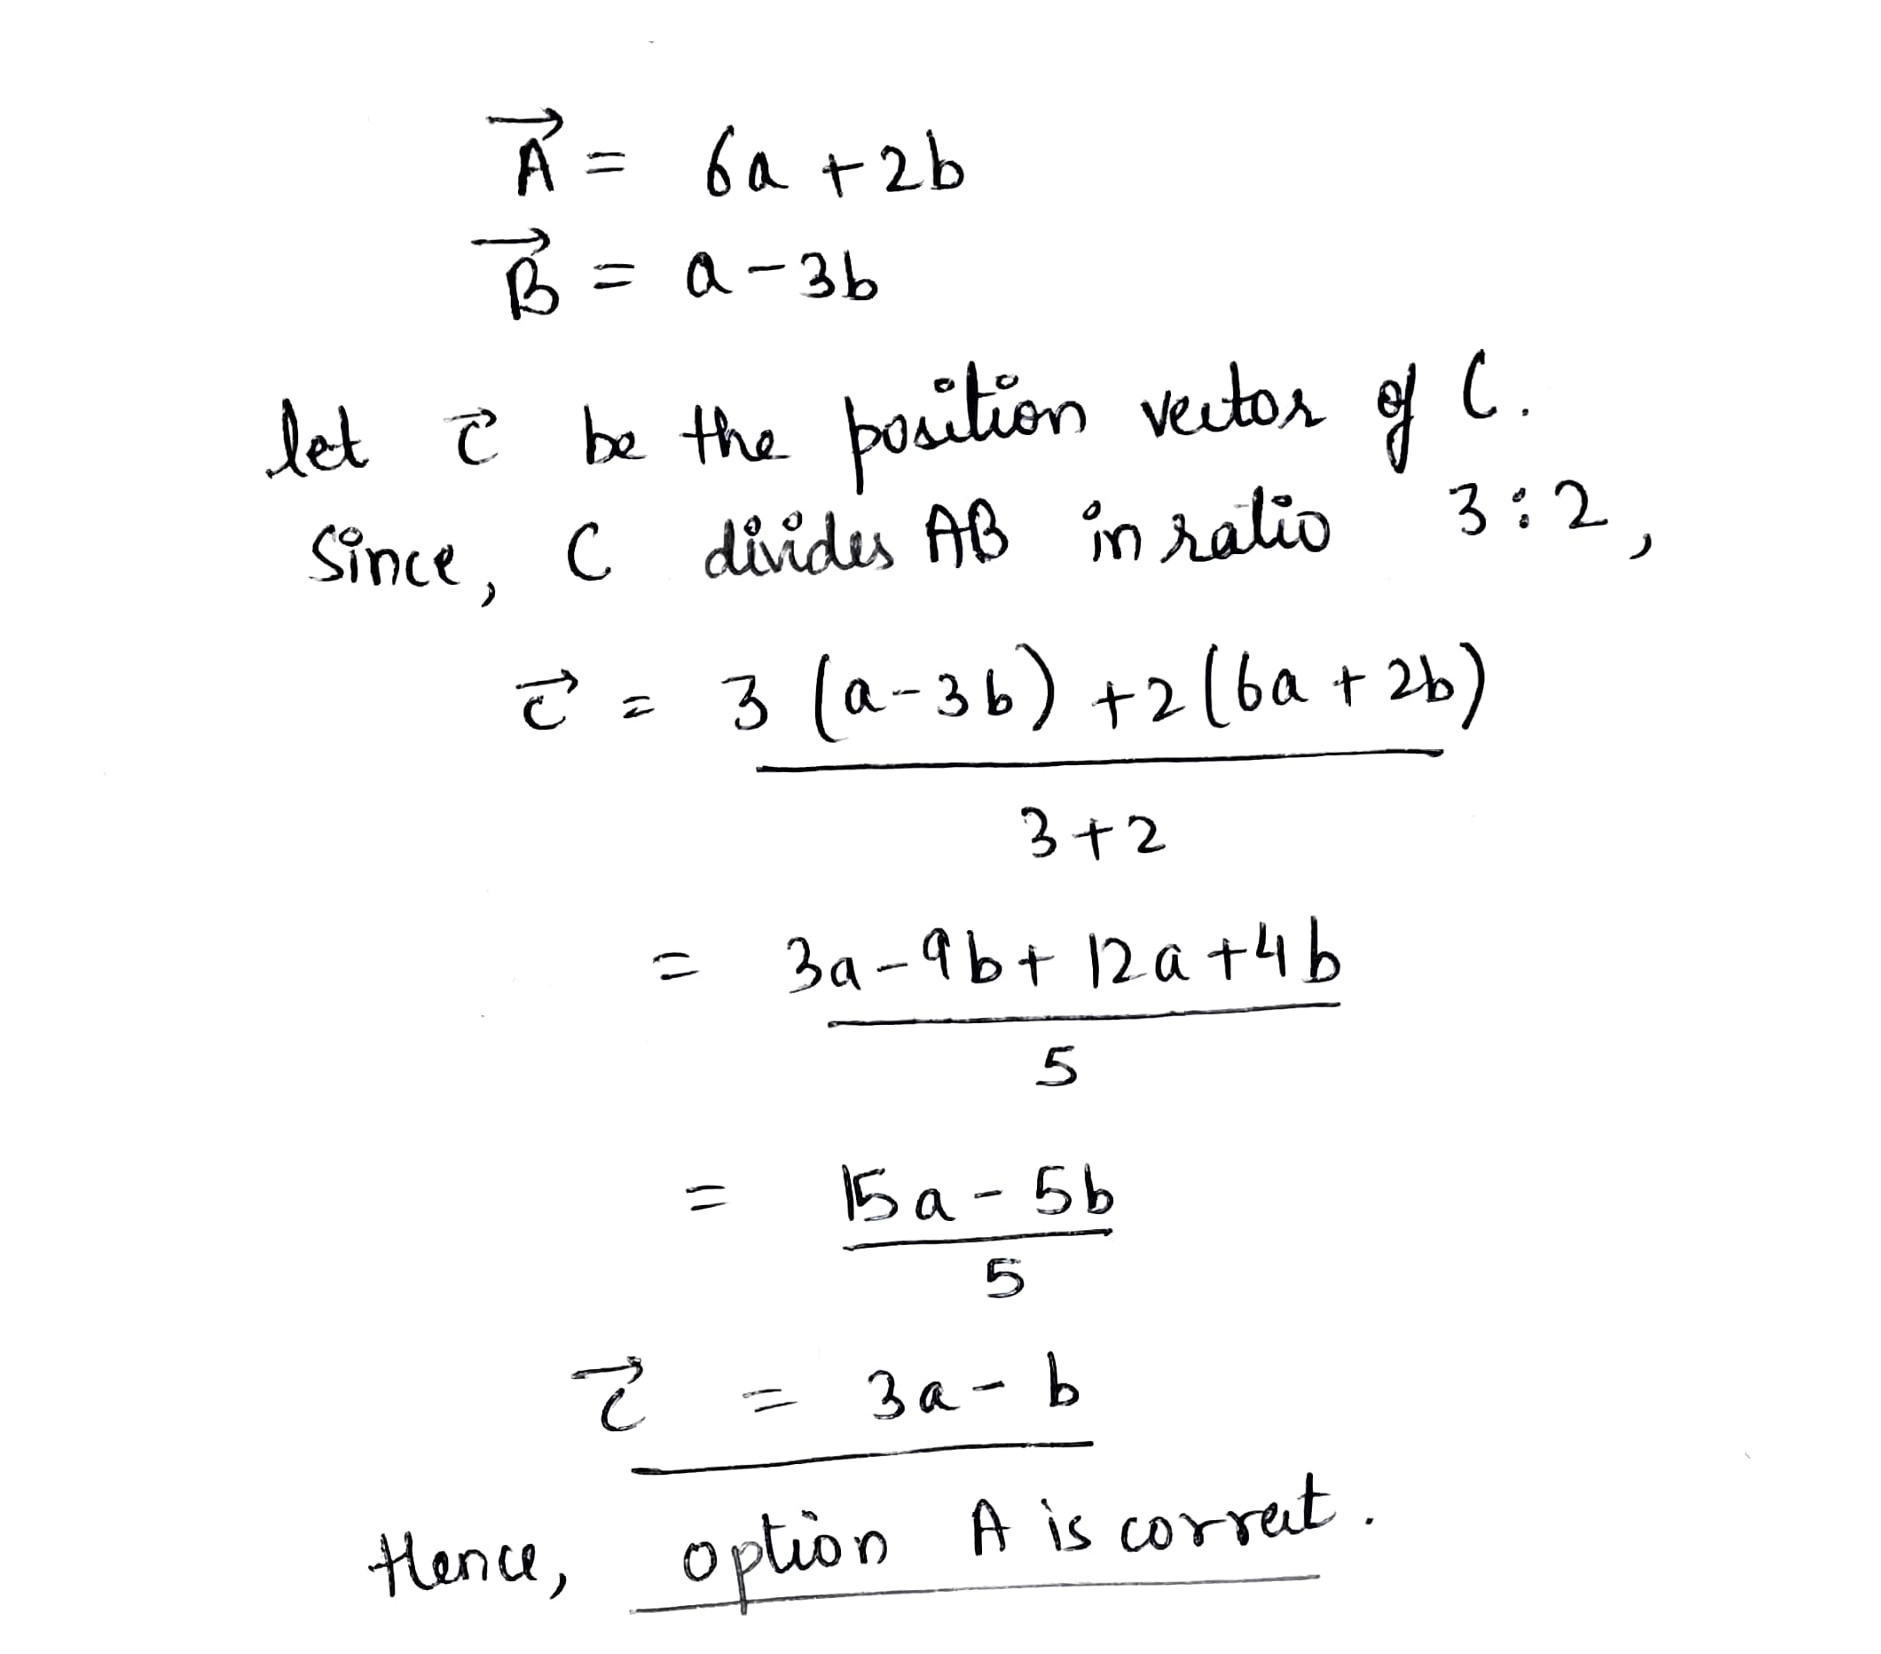 A⃗ = 6a + 2b
B⃗ = a - 3b
let c⃗ be the position vector of C.
Since, C divides AB in ratio 3:2,
c⃗ = 3 (a-3b) + 2 (6a + 2b)
3+2
= 3a - 9b + 12a + 4b
5
= 15a - 5b
5
c⃗ = 3a - b
Hence, option A is correct.